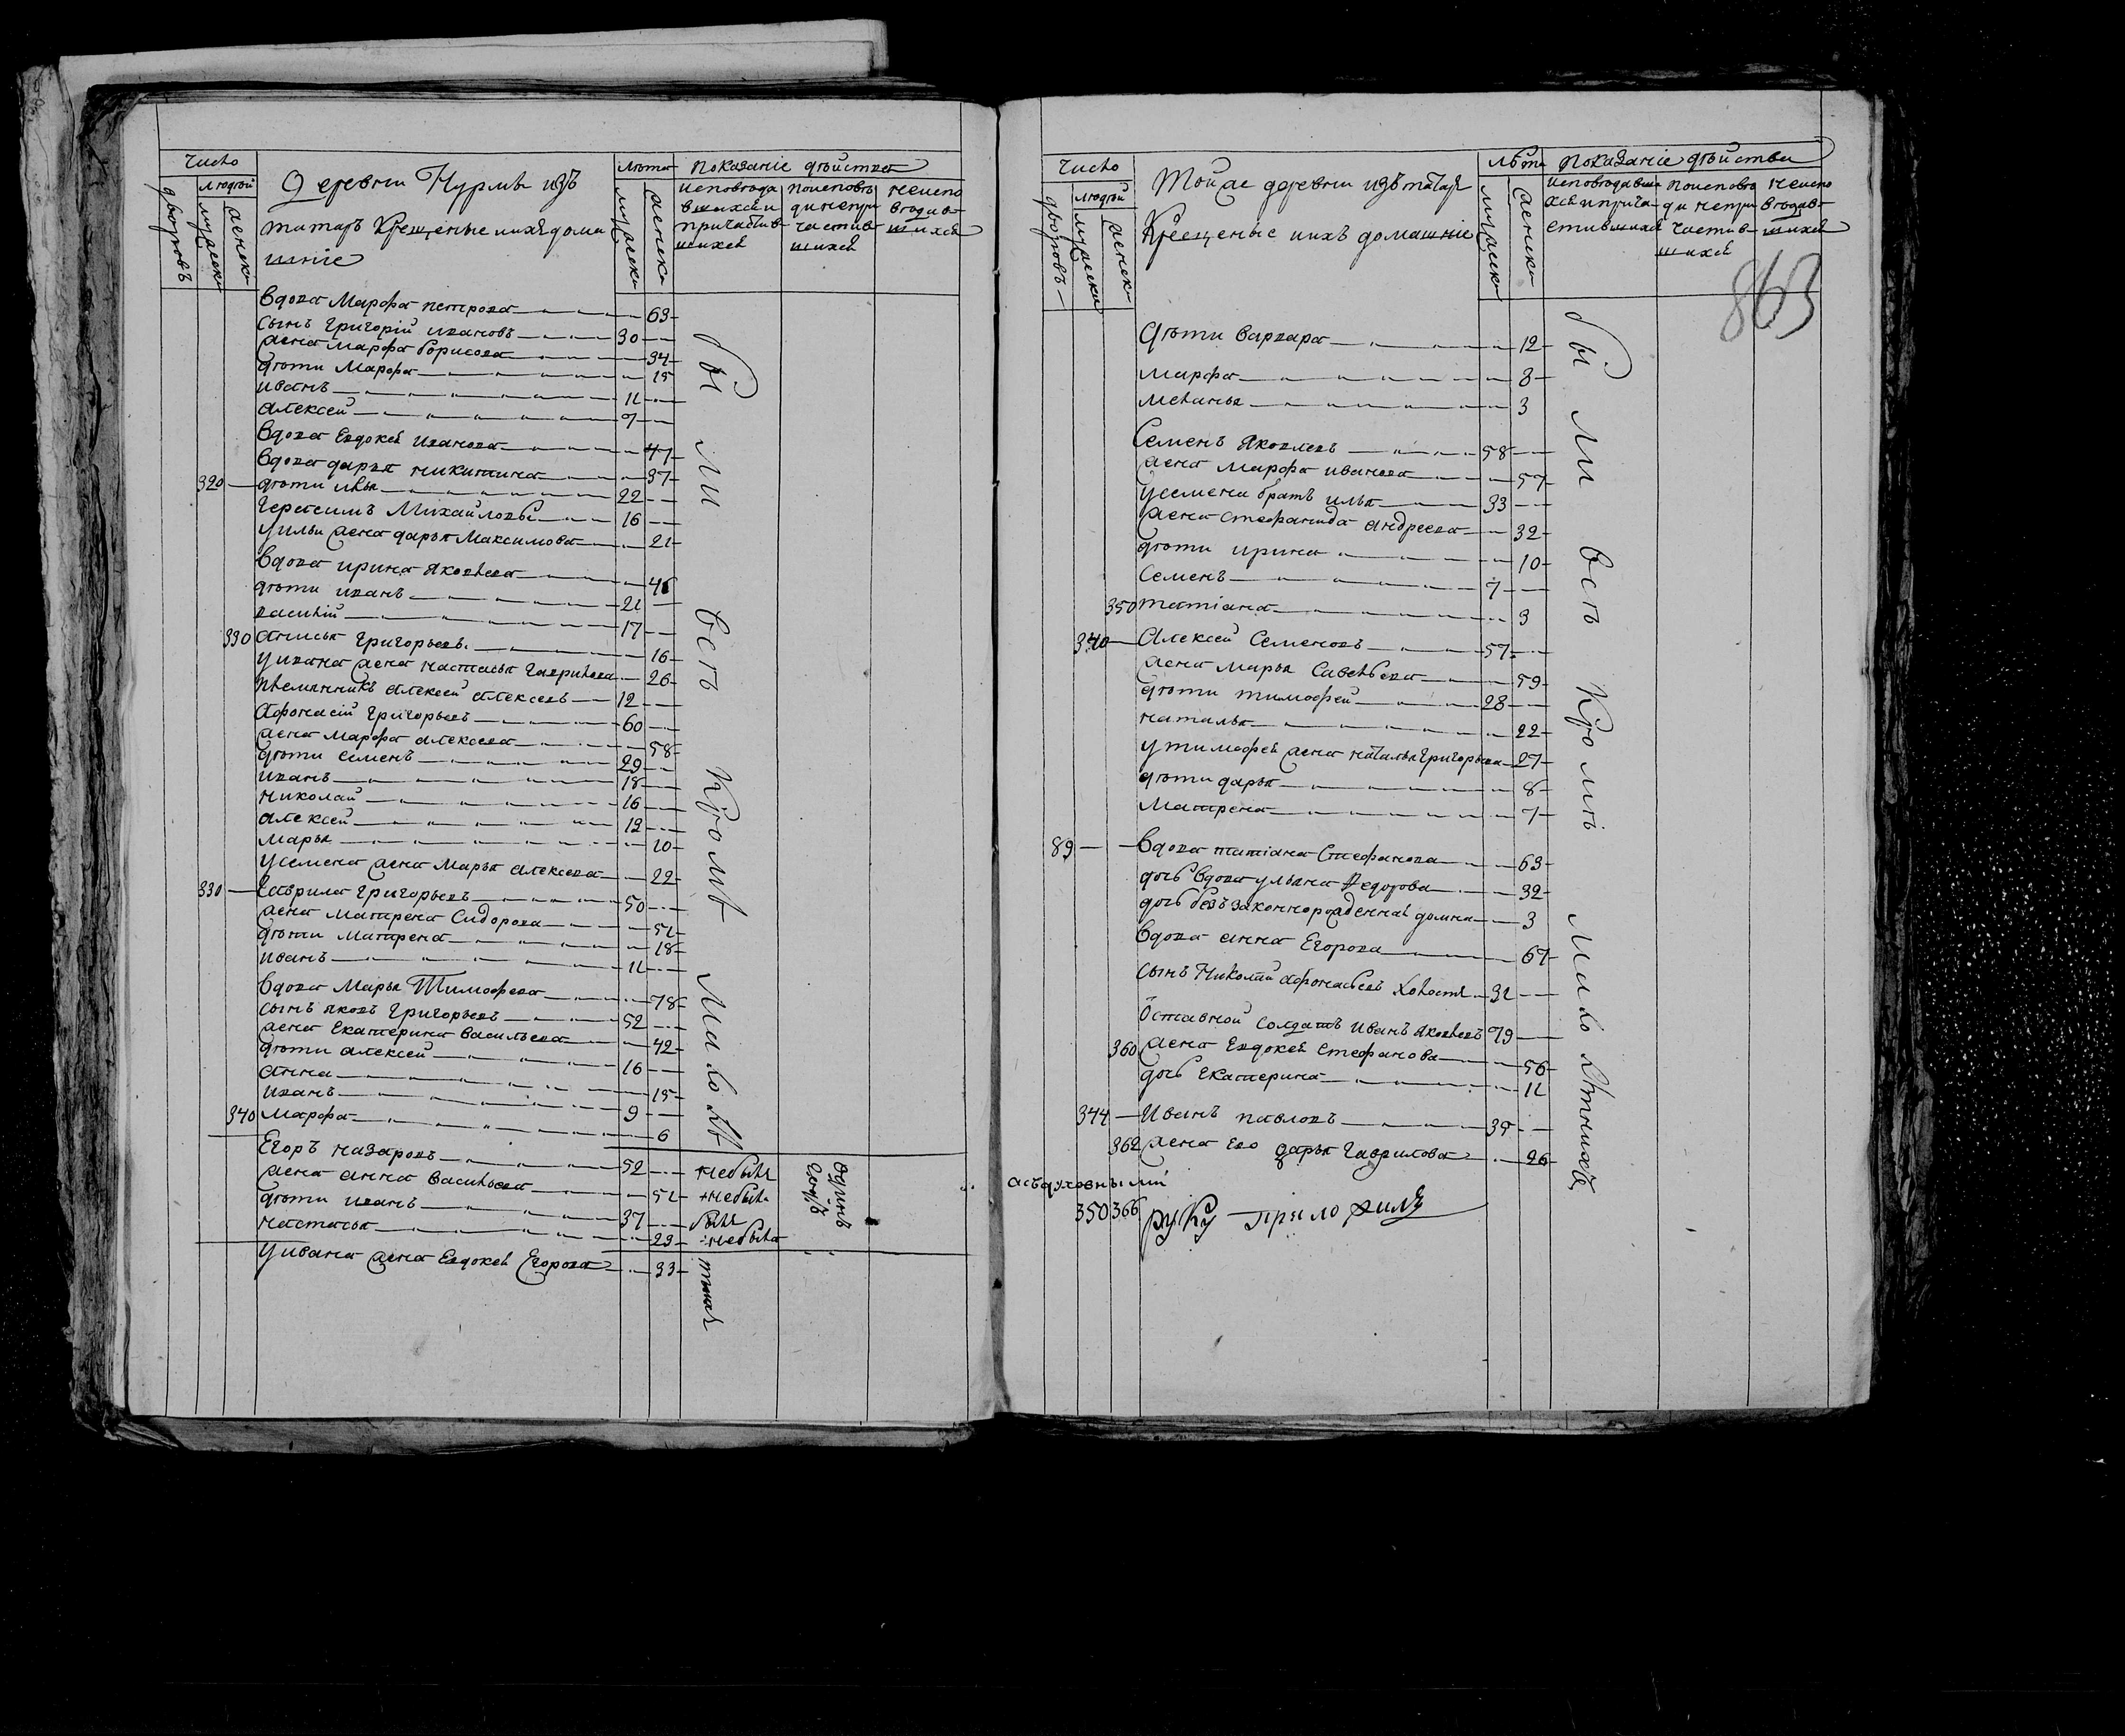 Число
людей
дворовъ
мужеска
женска
Деревни Нурмы изъ
татаръ Крещеные ихъ дома
шніе
лѣта
мужеска
женска
показаніе дѣйства
исповѣда
вшихсѧ и
причастив
шихсѧ
поисповѣ
ди непри
частив
шихсѧ
неиспо
вѣдав
шихсѧ
вдова Марфа петрова 63
сынъ григорій ивановъ 30
жена марфа борисова 34
дѣти Марфа 15
иванъ 11
алексей 7
вдова Евдокеѧ иванова 47
вдова дарьѧ никитина 37
320 дѣти ильѧ 22
герасимъ Михайловы 16
у ильи жена дарьѧ Максимова 21
вдова ирина яковлева 46
дѣти иванъ 21
василій 17
330 анисьѧ григорьевы 16
у ивана жена настасьѧ гаврилова 26
племянникъ алексей алексеевъ 12
Афонасій григорьевъ 60
жена марфа алексеева 58
дѣти семенъ 29
иванъ 18
николай 16
алексей 12
марьѧ 10
у семена жена Марьѧ алексеева 22
330 гаврила григорьевъ 50
жена матрена Сидорова 51
дѣти матрена 18
иванъ 11
вдова марьѧ Тимофеева 78
сынъ яковъ григорьевъ 52
жена Екатерина васильева 42
дѣти алексей 16
анна 15
иванъ 9
340 марфа 6
Егоръ назаровъ 52 небылъ
жена анна васильева 51 небыла
дѣти иванъ 37 былъ
настасьѧ 23 небыла
у ивана жена Евдокеѧ Егорова 33
были всѣ Кромѣ малолѣ
тныхъ
одинъ
годъ
Число
людей
дворовъ
мужеска
женска
Тойже деревни изъ татаръ
Крещеные ихъ домашніе
лѣта
мужеска
женска
показаніе дѣйства
исповѣдавши
хсѧ и прича
стившихсѧ
поисповѣ
ди непри
частив
шихсѧ
неиспо
вѣдав
шихсѧ
863
дѣти варвара 12
марфа 8
меланьѧ 3
Семенъ яковлевъ 58
жена марфа иванова 57
у семена братъ ильѧ 33
жена стефанида андреева 32
дѣти ирина 10
семенъ 7
350 татіана 3
340 алексей Семеновъ 57
жена марьѧ Савельева 59
дѣти тимофей 28
натальѧ 22
у тимофеѧ жена натальѧ григорьева 27
дѣти дарьѧ 8
матрена 7
89 вдова татіана Стефанова 63
дочь вдова ульѧна Федорова 32
дочь безъзаконнорожденнаѧ домна 3
вдова анна Егорова 67
сынъ николай афонасьевъ холостъ 31
Отставной солдатъ иванъ яковлевъ 79
360 жена Евдокеѧ стефанова 56
дочь Екатерина 11
344 иванъ павловъ 35
362 жена Его дарьѧ гаврилова 26
а съ духовными
350 366 руку приложилъ
были всѣ Кромѣ малолѣтнихъ